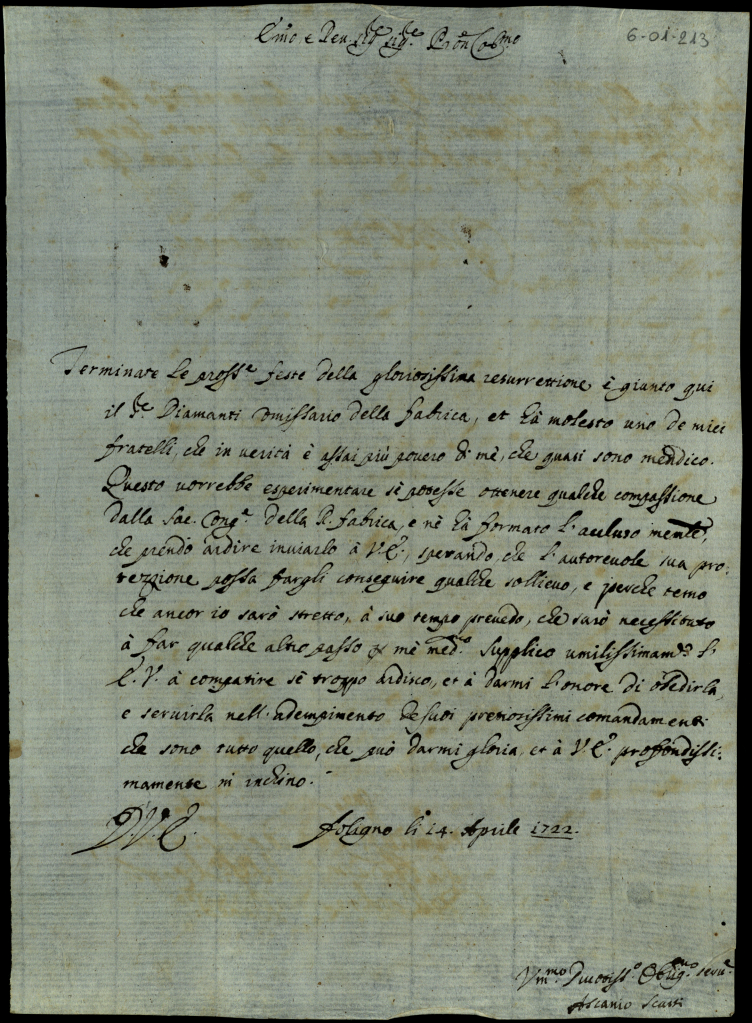 Em̃o e Rev. Sig.re Sig.re Pron Col.mo
6-01-213
Terminate le pross.e feste della gloriosissima resurrettione è giunto qui
il S.re Diamanti Comissario della fabrica, et hà molesto uno de miei
fratelli, che in verità è assai più povero di mè, che quasi sono mendico.
Questo vorrebbe esperimentare sè potesse ottenere qualche compassione
dalla Sac. Cong.e della R. fabrica, e nè hà formato l'accluso
che prendo ardire inviarlo à V.E., sperando, che l'autorevole sua pro:
tezzione possa fargli conseguire qualche sollievo, e perche temo
che ancor io sarò stretto, à suo tempo prevedo, che sarò necessitato
à far qualche altro passo p mè med.mo Supplico umilissimam.te l'
E.V. à compatire sè troppo ardisco, et à darmi l'onore di obedirla,
e servirla nell'adempimento de suoi pretiosissimi comandamenti
che sono tutto quello, che può darmi gloria, et à V.E. profondissi:
mamente m inchino.
D.V.E.
Foligno li 14. Aprile 1722.
Vm.mo Divotiss.o Oblig.mo Serv.e
Ascanio Scarti